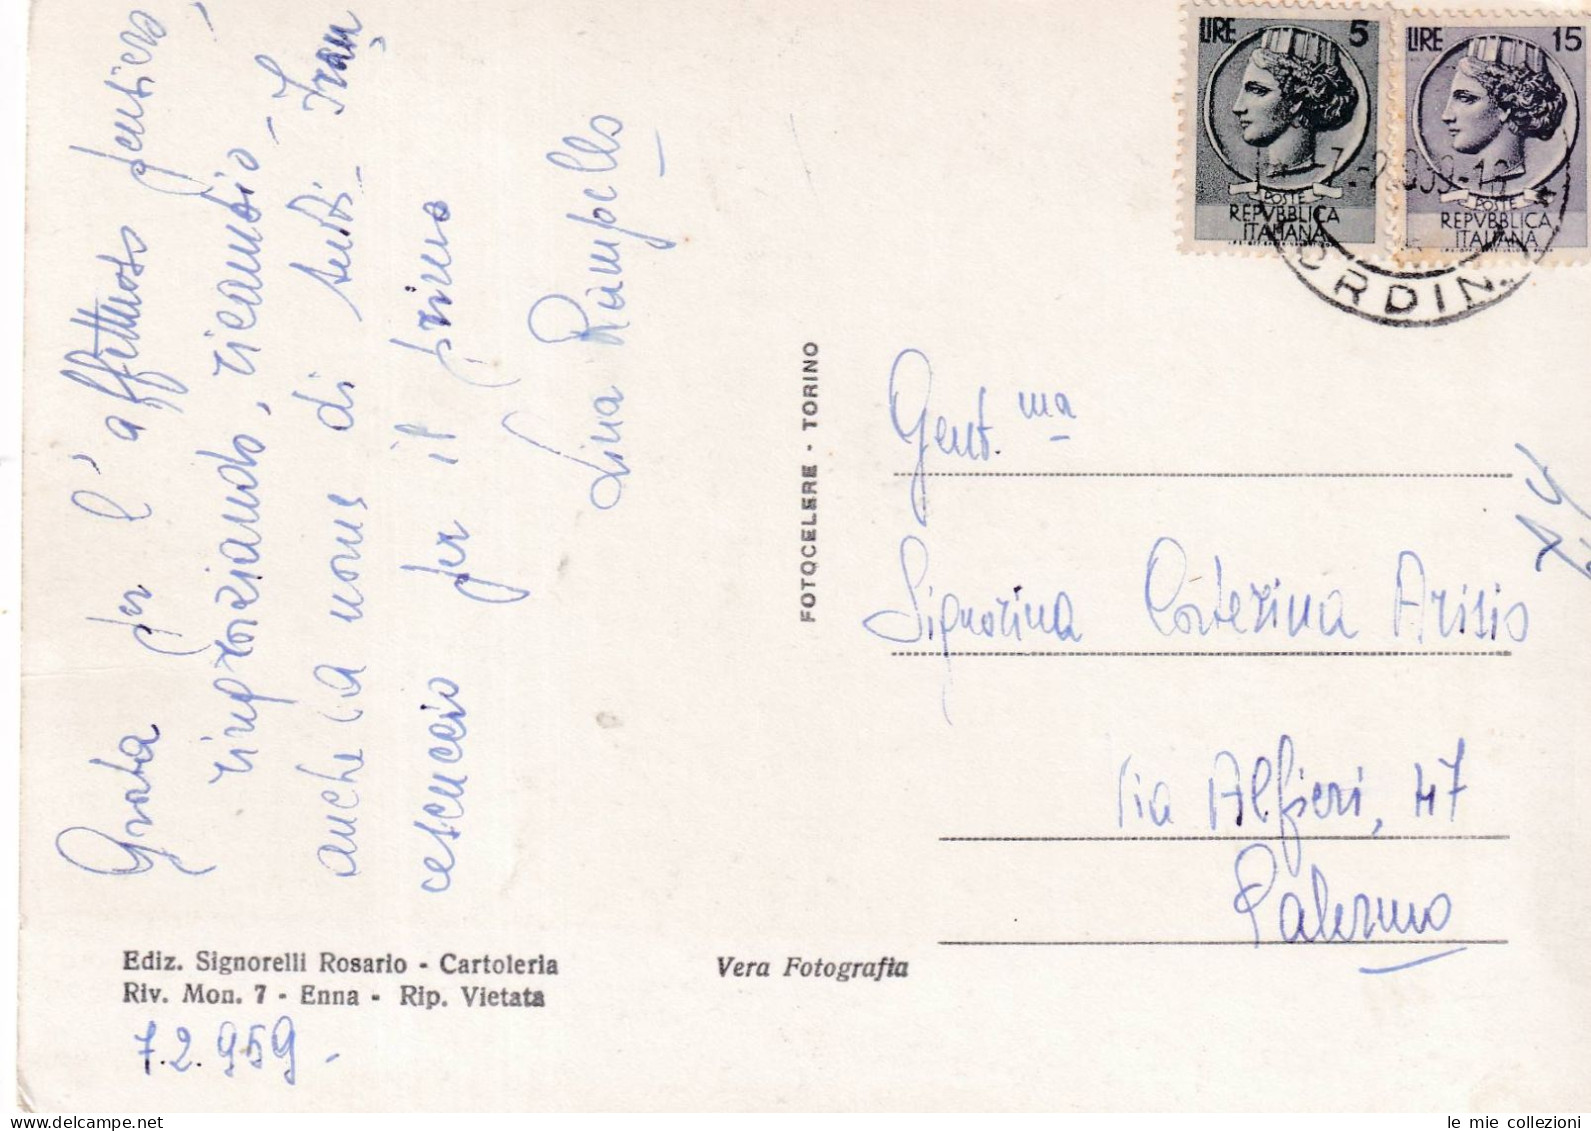 Grata per l'affettuoso pensiero
ringraziando, ricambio -
anche a nome di tutti - Fran
cescuccio per il primo
Lina Rampello
Ediz. Signorelli Rosario - Cartoleria
Riv. Mon. 7 - Enna - Rip. Vietata
7.2.959 -
Vera Fotografia
FOTOCELERE - TORINO
LIRE 5
POSTE
REPVBBLICA
ITALIANA
LIRE 15
POSTE
REPVBBLICA
ITALIANA
ORDIN.
Gent.ma
Signorina Caterina Arisio
Via Alfieri, 47
Palermo
le mie collezioni